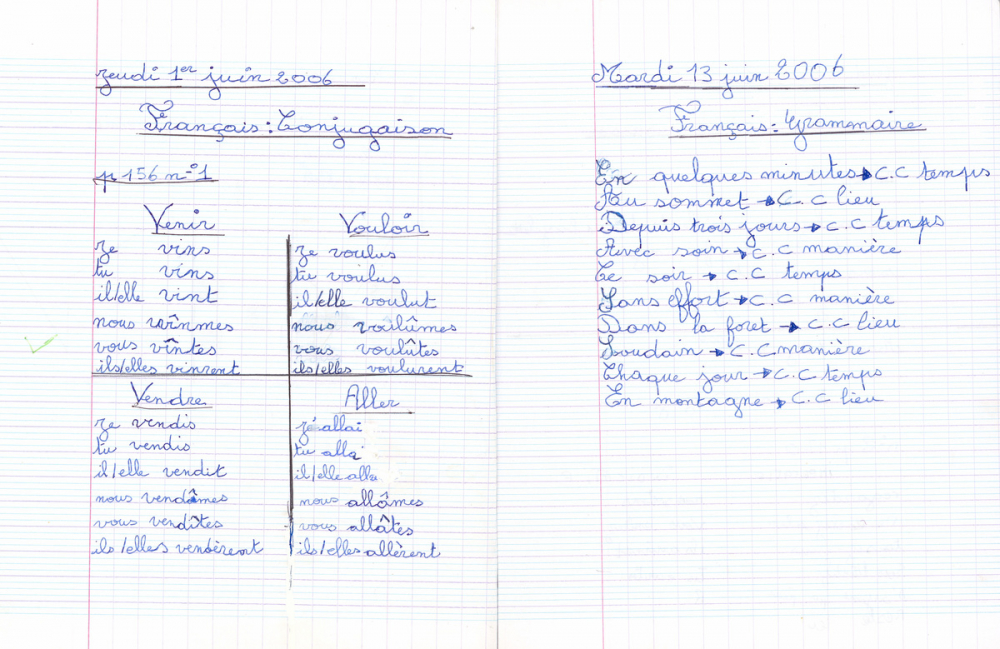 Jeudi 1er juin 2006
Français : Conjugaison
p 156 n°1
Venir
je vins
tu vins
il/elle vint
nous vînmes
vous vîntes
ils/elles vinrent
Vouloir
je voulus
tu voulus
il/elle voulut
nous voulûmes
vous voulûtes
ils/elles voulurent
Vendre
je vendis
tu vendis
il/elle vendit
nous vendâmes
vous vendîtes
ils/elles vendèrent
Aller
j'allai
tu alla
il/elle alla
nous allâmes
vous allâtes
ils/elles allèrent
Mardi 13 juin 2006
Français : Grammaire
En quelques minutes → C.C temps
Au sommet → C.C lieu
Depuis trois jours → C.C temps
Avec soin → C.C manière
Ce soir → C.C temps
Sans effort → C.C manière
Dans la foret → C.C lieu
Soudain → C.C manière
Chaque jour → C.C temps
En montagne → C.C lieu